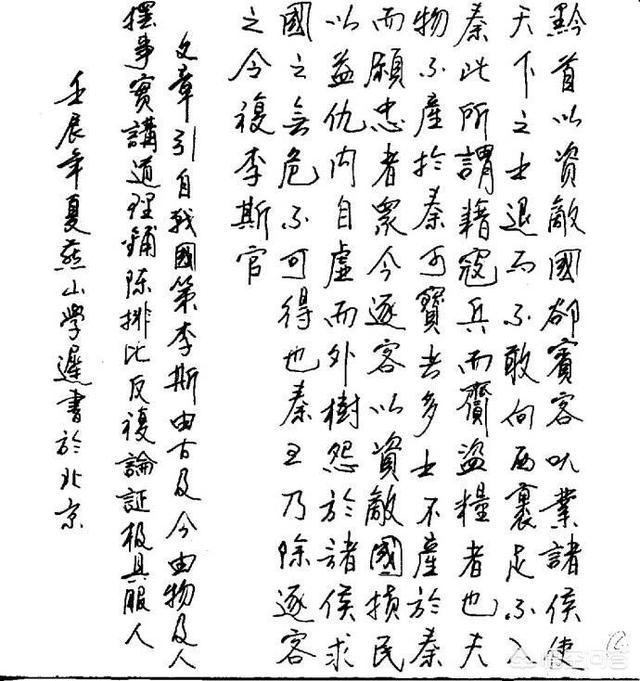 黔首以資敵國卻賓客以業諸侯使
天下之士退而不敢向西裹足不入
秦此所謂藉寇兵而齎盜糧者也夫
物不產於秦可寶者多士不產於秦
而願忠者衆今逐客以資敵國損民
以益仇内自虛而外樹怨於諸侯求
國之無危不可得也秦王乃除逐客
之令複李斯官
文章引自戰國策李斯由古及今由物及人
擺事實講道理鋪陈排比反複論証极具服人
壬辰年夏燕山學遲書於北京